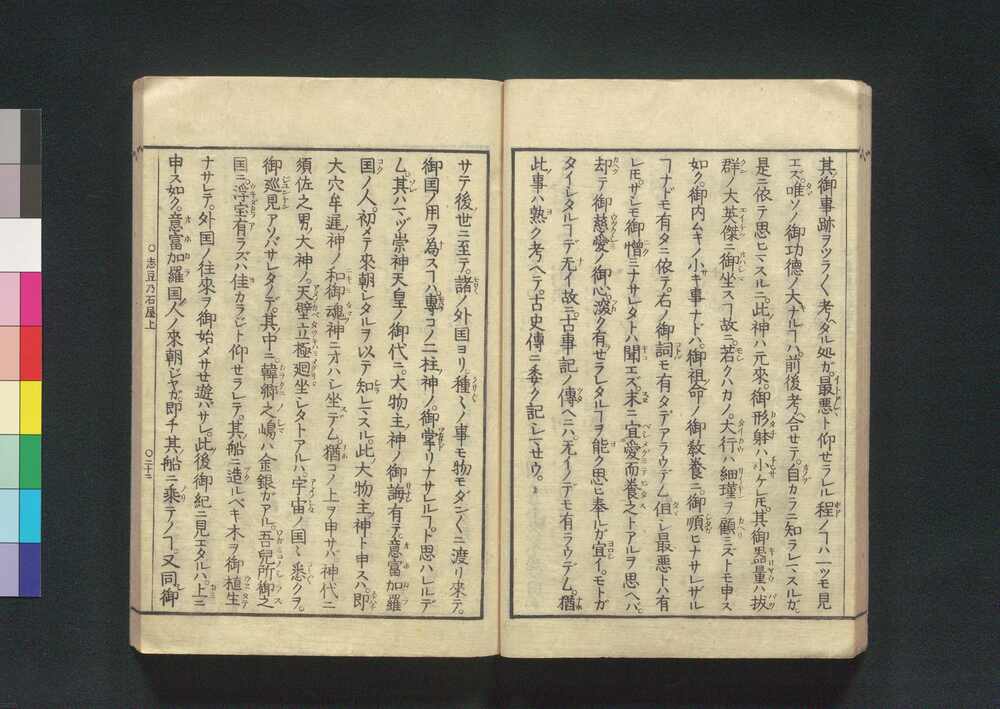 其御事跡ヲツラ〳〵考ヘタル処ガ。最悪ト仰セラレル程ノヿハ一ツモ見
エズ。唯ソノ御功徳ノ大ナルヿハ。前後考合セテ。自カラニ知ラレマスルガ。
是ニ依テ思ヒマスルニ。此神ハ元來。御形躰ハ小ケレ𪜈。其御器量ハ抜
群ノ大英傑ニ御坐スヿ故ニ。若クハカノ。大行ハ細瑾ヲ顧ミズトモ申ス
如ク。御内ムキノ小キ事ナドハ。御祖命ノ御敎養ニ。御順ヒナサレザル
ヿナドモ有タニ依テ。右ノ御詞モ有タデアラウデム。但シ最悪トハ有
レ𪜈。サシモ御憎ミナサレタトハ聞エズ。末ニ宜愛而養之トアルヲ思ヘバ。
却テ御慈愛ノ御心。深ク有セラレタルヿヲ能ク思ヒ奉ルガ宜イ。モトガ
タイレタルヿデ无イ故ニ。古事記ノ傳ヘニハ。无イノデモ有ラウデム。猶
此事ハ熟ク考ヘテ。古史傳ニ委ク記シマセウ。
サテ後世ニ至テ。諸ノ外国ヨリ。種〻ノ事モ物モダン〳〵ニ渡リ來テ。
御国ノ用ヲ為スヿハ。專コノ二柱神ノ。御掌リナサルヿ。ト思ハレルデ
ム。其ハマヅ崇神天皇ノ御代ニ。大物主神ノ御誨有テ。意富加羅
国ノ人。初メテ來朝シタルヲ以テ知レマスル。此大物主神ト申スハ。即
大穴牟遅神ノ和御魂神ニオハシ坐デム。猶コノ上ヲ申サバ。神代ニ
須佐之男大神ノ。天壁立極廻坐シタトアルハ。宇宙ノ国〻悉クヲ。
御巡見アソバサレタノデ。其中ニ韓郷之嶋ハ金銀ガアル。吾兒所御之
国ニ浮宝有ラズハ佳カラジト仰セラレテ。其船ニ造ルベキ木ヲ御植生
ナサレテ。外国ノ往來ヲ御始メサセ遊バサレ。此後御紀ニ見エタルハ。上ニ
申ス如ク。意富加羅国人ノ來朝ジヤガ。即チ其船ニ乗テノヿ。又同御
○志豆乃石屋上 ○二十二